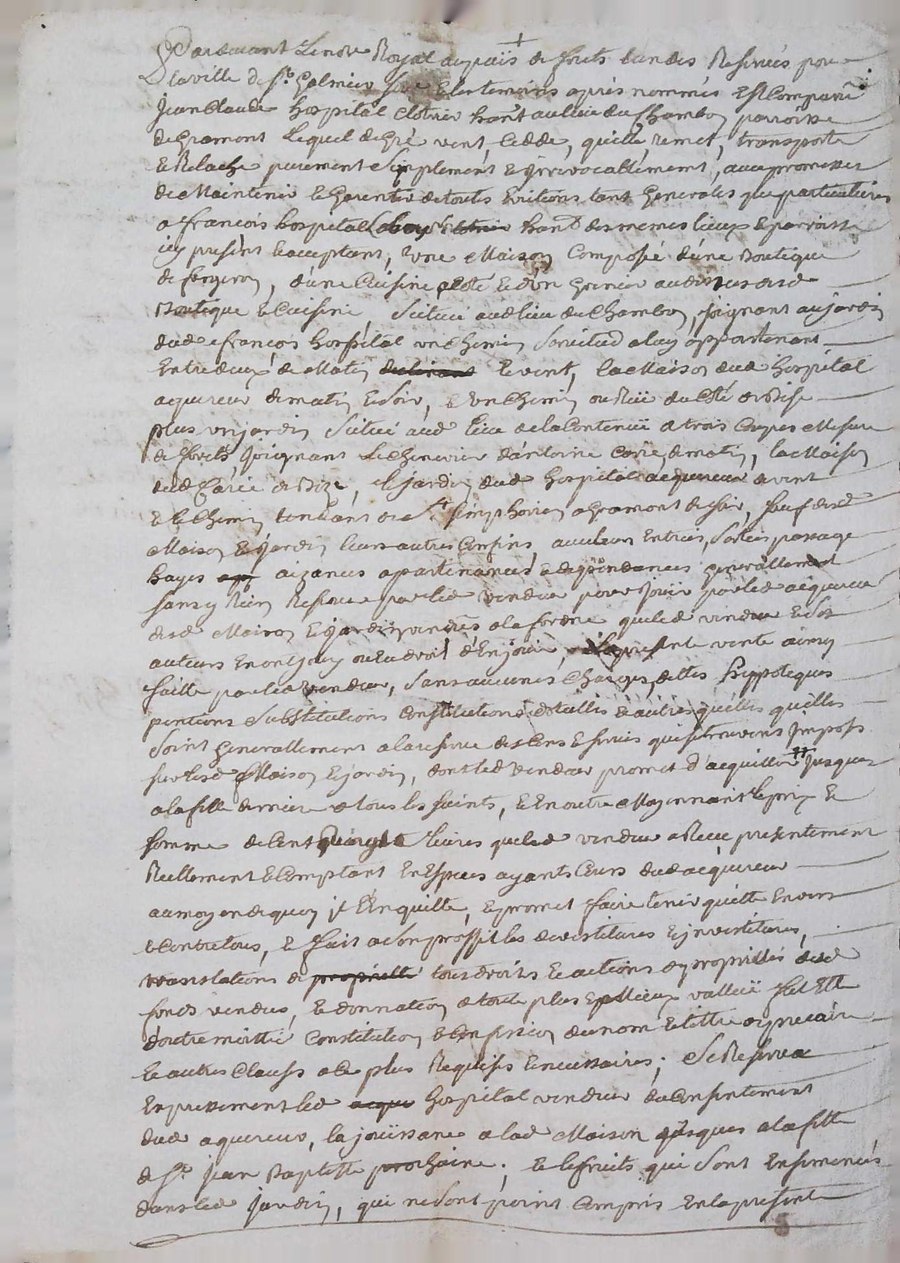 Pardevant le notre Royal au païs de forets un des Reservés pour
la ville de St. Galmier et les temoins après nommés Est Comparu
Jean Claude hospital Clotrier hant. au lieu du Chambon parroisse
de Gramont lequel de gré vent, cedde, quitte, remet, transporte
& Relache purement simplement & Irrevocablement, avec promesses
de Maintenir & Garentir de touts Evitions tant Generales que particulieres
a francois hospital hant. des memes lieux & parroisse
icy present & acceptant, une Maison Composé d'une Boutique
de forgeron, d'une Cuisine a coté & d'un Grenier au dessus desd
Boutique & Cuisine Scitué aud lieu du Chambon, joignant au jardin
dud francois hospital un chemin Servitud a luy appartenant
Entre deux de Matin & vent, la Maison dud hospital
acquereur de matin & soir, & un Chemin ou Ruë du Côté de Bise
plus un jardin Scitué aud lieu de la Contenuë a trois Coupes Mesure
de forets, Joignant le Chenevier d'antoine Carré de matin, la Maison
dud Carré de Bize, le Jardin dud hospital acquereur de vent
& le Chemin tendant de St. Simphorien a Gramont de soir, sauf desd
Maison & Jardin leurs autres Confins, avec leurs Entrées, Sorties passage
hayes aizances apartenances & dependances generallement
sans y Rien Reserver par led vendeur pour Jouir par led acquereur
desd Maison & jardin vendus a la forme que led vendeur & ses
auteurs En ont Jouy ou Eu droit d'En jouir, la presente vente ainsy
faitte par led vendeur, sans aucunes Charges, dettes hippoteques
pentions Substitutions Constitutions dotalles & autres quelles qu'elles
Soint generallement a la reserve des Cens & servis qui se trouvent Imposés
sur lesd Maison & jardin, dont led vendeur promet d'acquitter Jusques
a la fette derniere de tous les saints, & En outre Moyennant le prix &
somme de Cent livres que led vendeur a Receu presentement
Reellement & Comptant En Especes ayants Cours dud acquereur
au moyen de quoy il l'En quitte, & promet faire tenir quitte Envers
& Contre tous, & fait a son proffit les devestitures & investitures,
translations de propriété tous droits & actions & proprietés desd
fonds vendus, & donnation de toute plus & Mieux valluë fut Elle
d'outre moittié Constitution & Confession du nom & tittre de precaire
& autres Clauses a ce plus Requises & necessaires; Se Reserve
Expressement led hospital vendeur du Consentement
dud aquereur, la joüissance de lad Maison jusques a la fette
de St. Jean Baptiste prochaine; & les fruits qui sont Ensemencés
dans led Jardin, qui ne sont point Compris En la presente